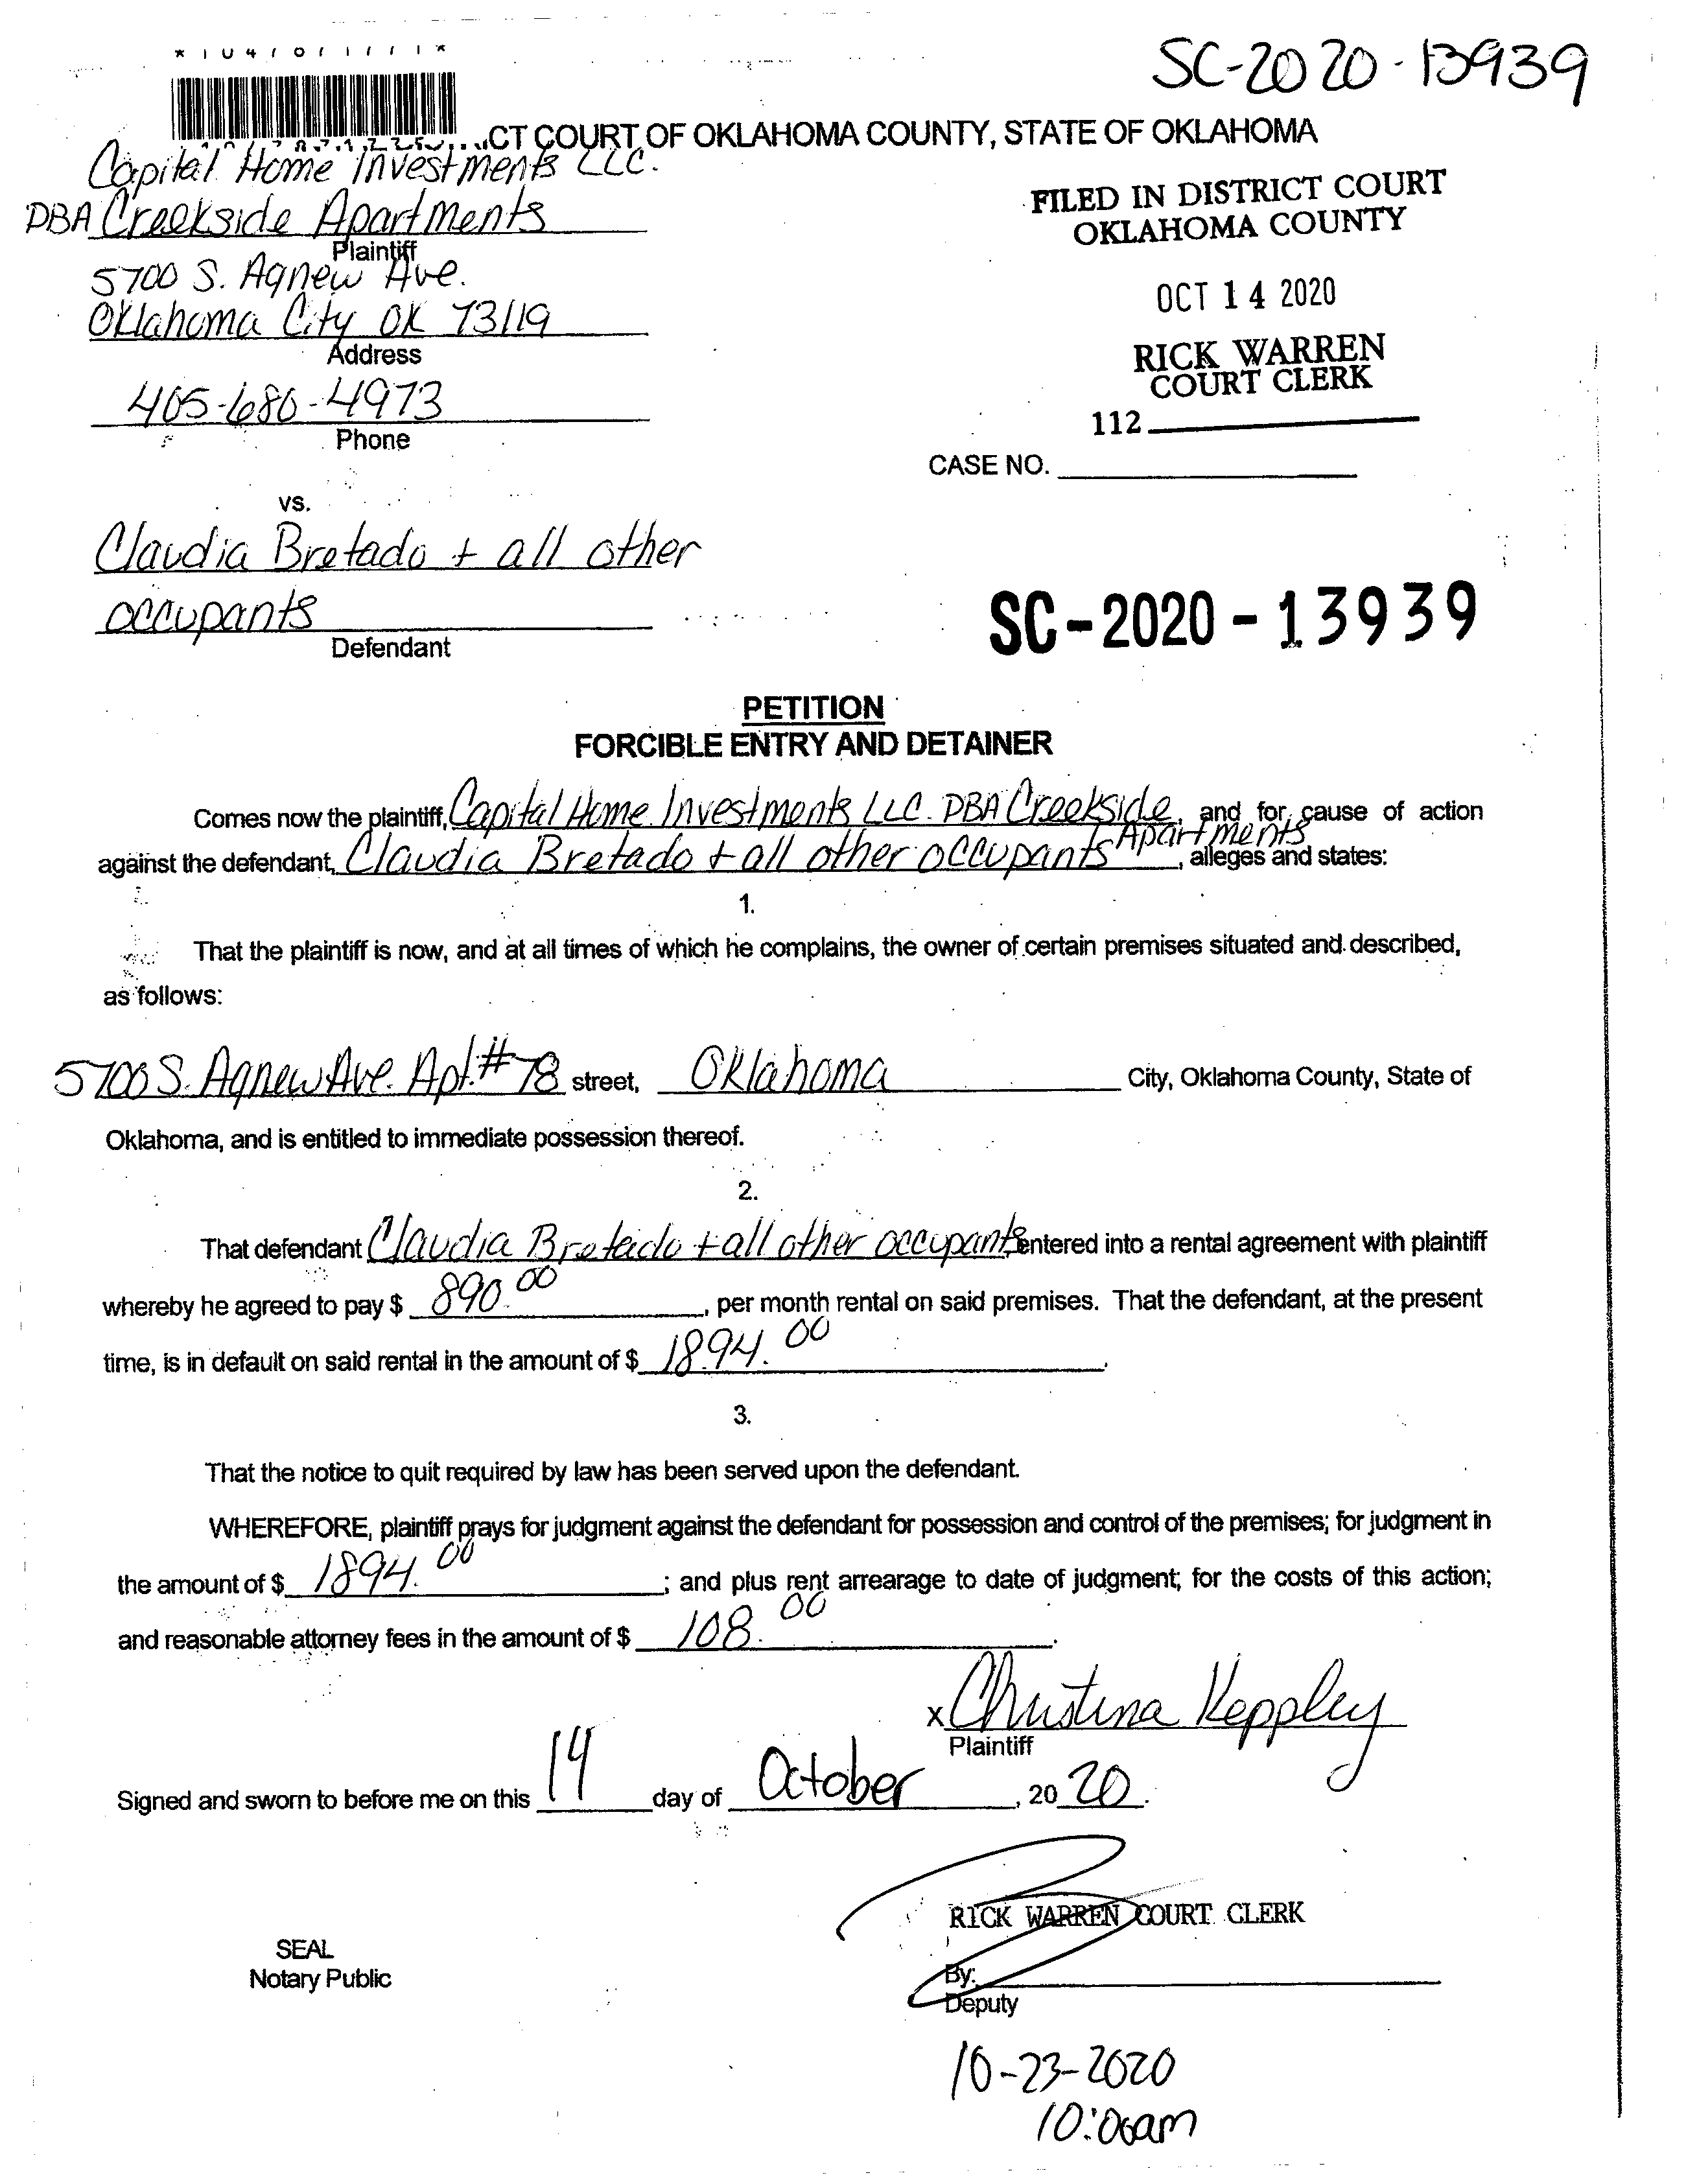 SC-2020-13939
CT COURT OF OKLAHOMA COUNTY, STATE OF OKLAHOMA
Capital Home Investments LLC.
DBA Creekside Apartments
Plaintiff
5700 S. Agnew Ave.
Oklahoma City OK 73119
Address
405-680-4973
Phone
FILED IN DISTRICT COURT
OKLAHOMA COUNTY
OCT 14 2020
RICK WARREN
COURT CLERK
112
CASE NO.
vs.
Claudia Bretado + all other
occupants
Defendant
SC-2020-13939
PETITION
FORCIBLE ENTRY AND DETAINER
Comes now the plaintiff, Capital Home Investments LLC. DBA Creekside Apartments, and for cause of action
against the defendant, Claudia Bretado + all other occupants, alleges and states:
1.
That the plaintiff is now, and at all times of which he complains, the owner of certain premises situated and described,
as follows:
5700 S. Agnew Ave. Apt. # 78 street, Oklahoma City, Oklahoma County, State of
Oklahoma, and is entitled to immediate possession thereof.
2.
That defendant Claudia Bretado + all other occupants entered into a rental agreement with plaintiff
whereby he agreed to pay $ 890.00, per month rental on said premises. That the defendant, at the present
time, is in default on said rental in the amount of $ 1894.00.
3.
That the notice to quit required by law has been served upon the defendant.
WHEREFORE, plaintiff prays for judgment against the defendant for possession and control of the premises; for judgment in
the amount of $ 1894.00; and plus rent arrearage to date of judgment; for the costs of this action;
and reasonable attorney fees in the amount of $ 108.00.
x Christina Keppley
Plaintiff
Signed and sworn to before me on this 14 day of October, 2020.
RICK WARREN COURT CLERK
SEAL
Notary Public
By:
Deputy
10-23-2020
10:00am